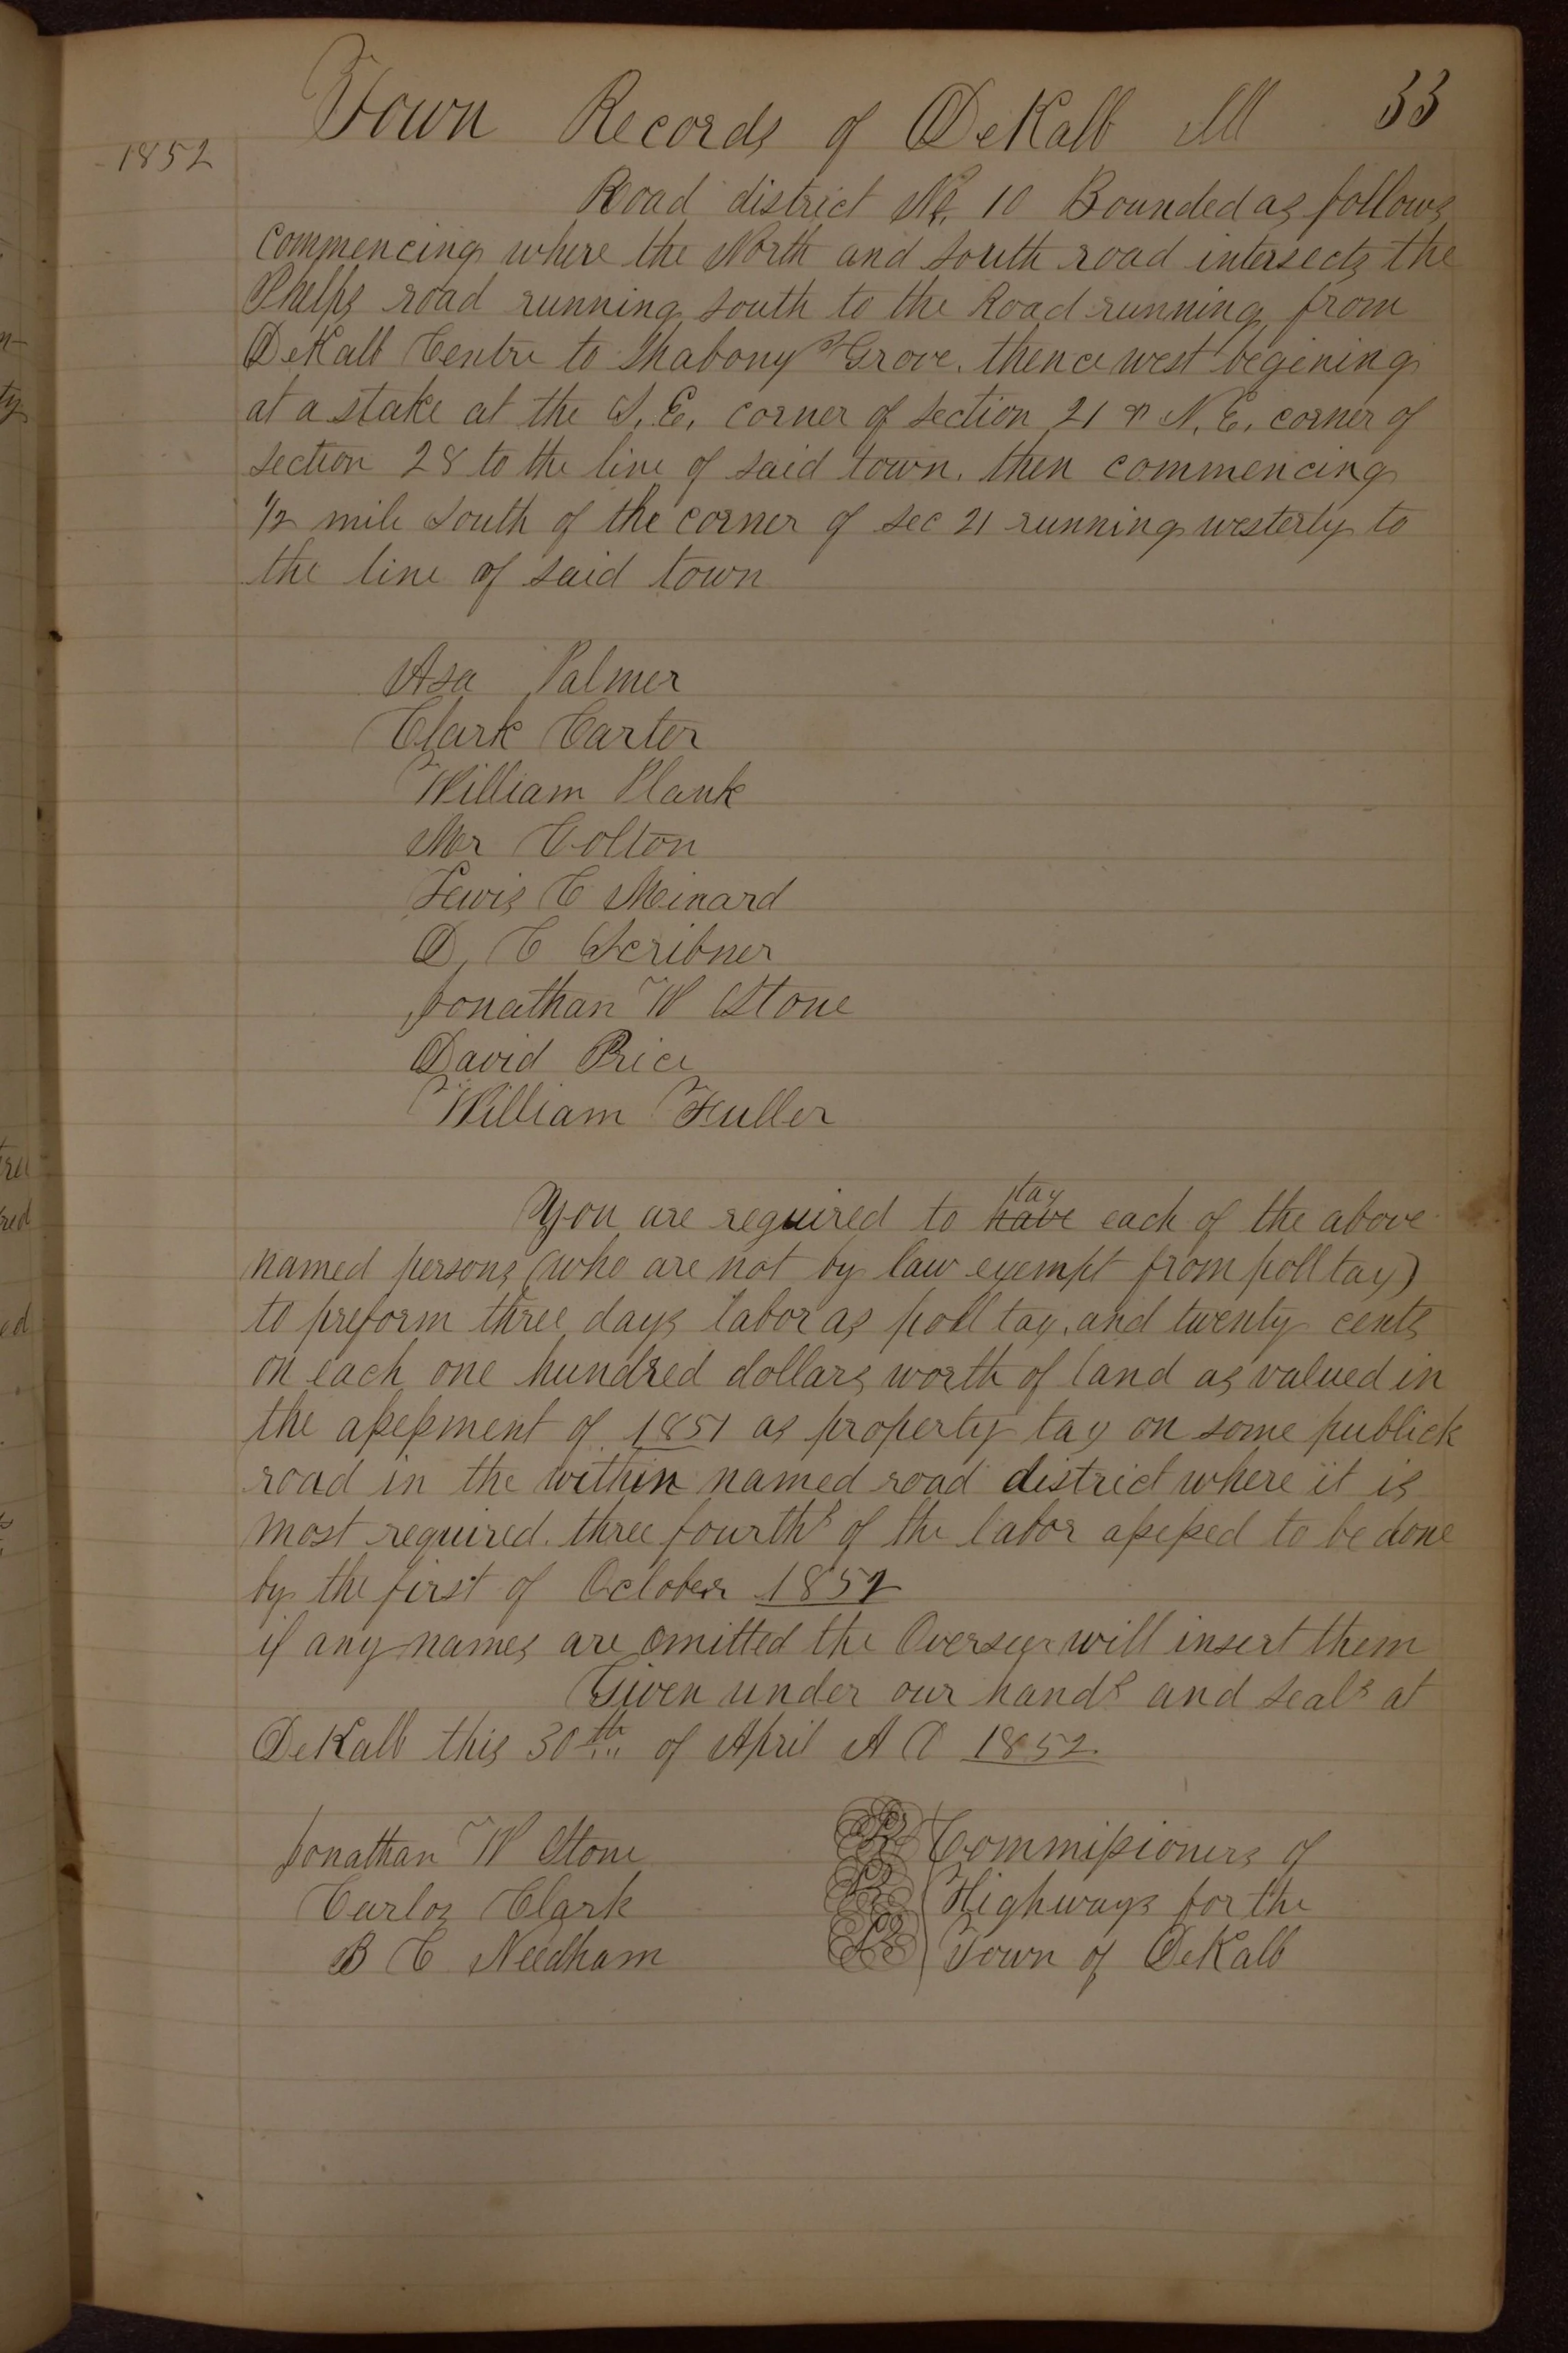 Town Records of DeKalb Ill 33
1852
Road district No. 10 Bounded as follows
commencing where the North and South road intersects the
Phelps road running South to the Road running from
DeKalb Centre to Shabony's Grove. thence west begining
at a stake at the S. E. corner of Section 21 & N. E. corner of
section 28 to the line of said town. then commencing
1/2 mile South of the corner of sec 21 running westerly to
the line of said town
Asa Palmer
Clark Carter
William Plank
Mr Colton
Lewis C Meinard
D. C Scribner
Jonathan W Stone
David Price
William Fuller
tax
You are required to have each of the above
named persons (who are not by law exempt from poll tax)
to preform three days labor as poll tax, and twenty cents
on each one hundred dollars worth of land as valued in
the assessment of 1851 as property tax on some publick
road in the within named road district where it is
most required. three fourths of the labor assessed to be done
by the first of October 1852
if any names are omitted the Overseer will insert them
Given under our hands and seals at
DeKalb this 30th of April A D 1852.
Jonathan W Stone LS Commissioners of
Carlos Clark LS Highways for the
B C Needham LS Town of DeKalb